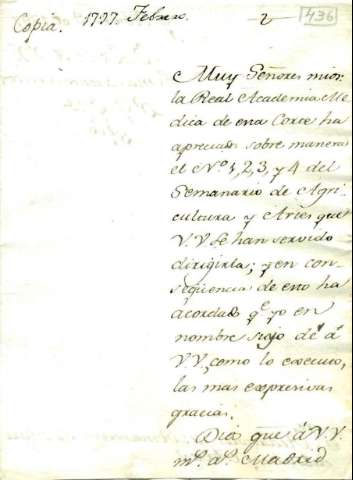 Copia. 1797. Febrero. 2 436
Muy Señores mios:
la Real Academia Me
dica de esta Corte ha
apreciado sobre manera
el Nº 1, 2, 3, y 4 del
Semanario de Agri
cultura y Artes que
V.V se han servido
dirigirla; y en con-
seqüencia de esto ha
acordado qe yo en
nombre suyo dé á
VV, como lo executo,
las mas expresivas
gracias.
Dios gue á V.V.
ms. as. Madrid